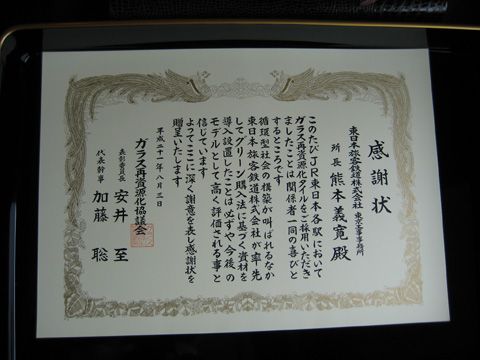 感謝状
東日本旅客鉄道株式会社 東京工事事務所
所長 熊本義寛殿
このたびJR東日本各駅において
ガラス再資源化タイルをご採用いただき
ましたことは関係者一同の喜びと
するところです
循環型社会の構築が叫ばれるなか
東日本旅客鉄道株式会社が率先
してグリーン購入法に基づく資材を
導入設置したことは必ずや今後の
モデルとして高く評価される事と
信じています
よってここに深く謝意を表し感謝状を
贈呈いたします
平成二十一年八月三日
ガラス再資源化協議会
表彰委員長 安井至
代表幹事 加藤聡